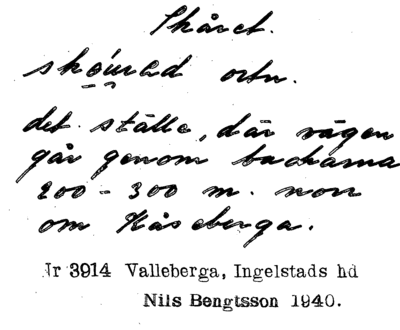 Skåret.
ortn.
det ställe, där vägen
går genom backarna
200 - 300 m. norr
om Kåseberga.
Nr 3914 Valleberga, Ingelstads hd
Nils Bengtsson 1940.